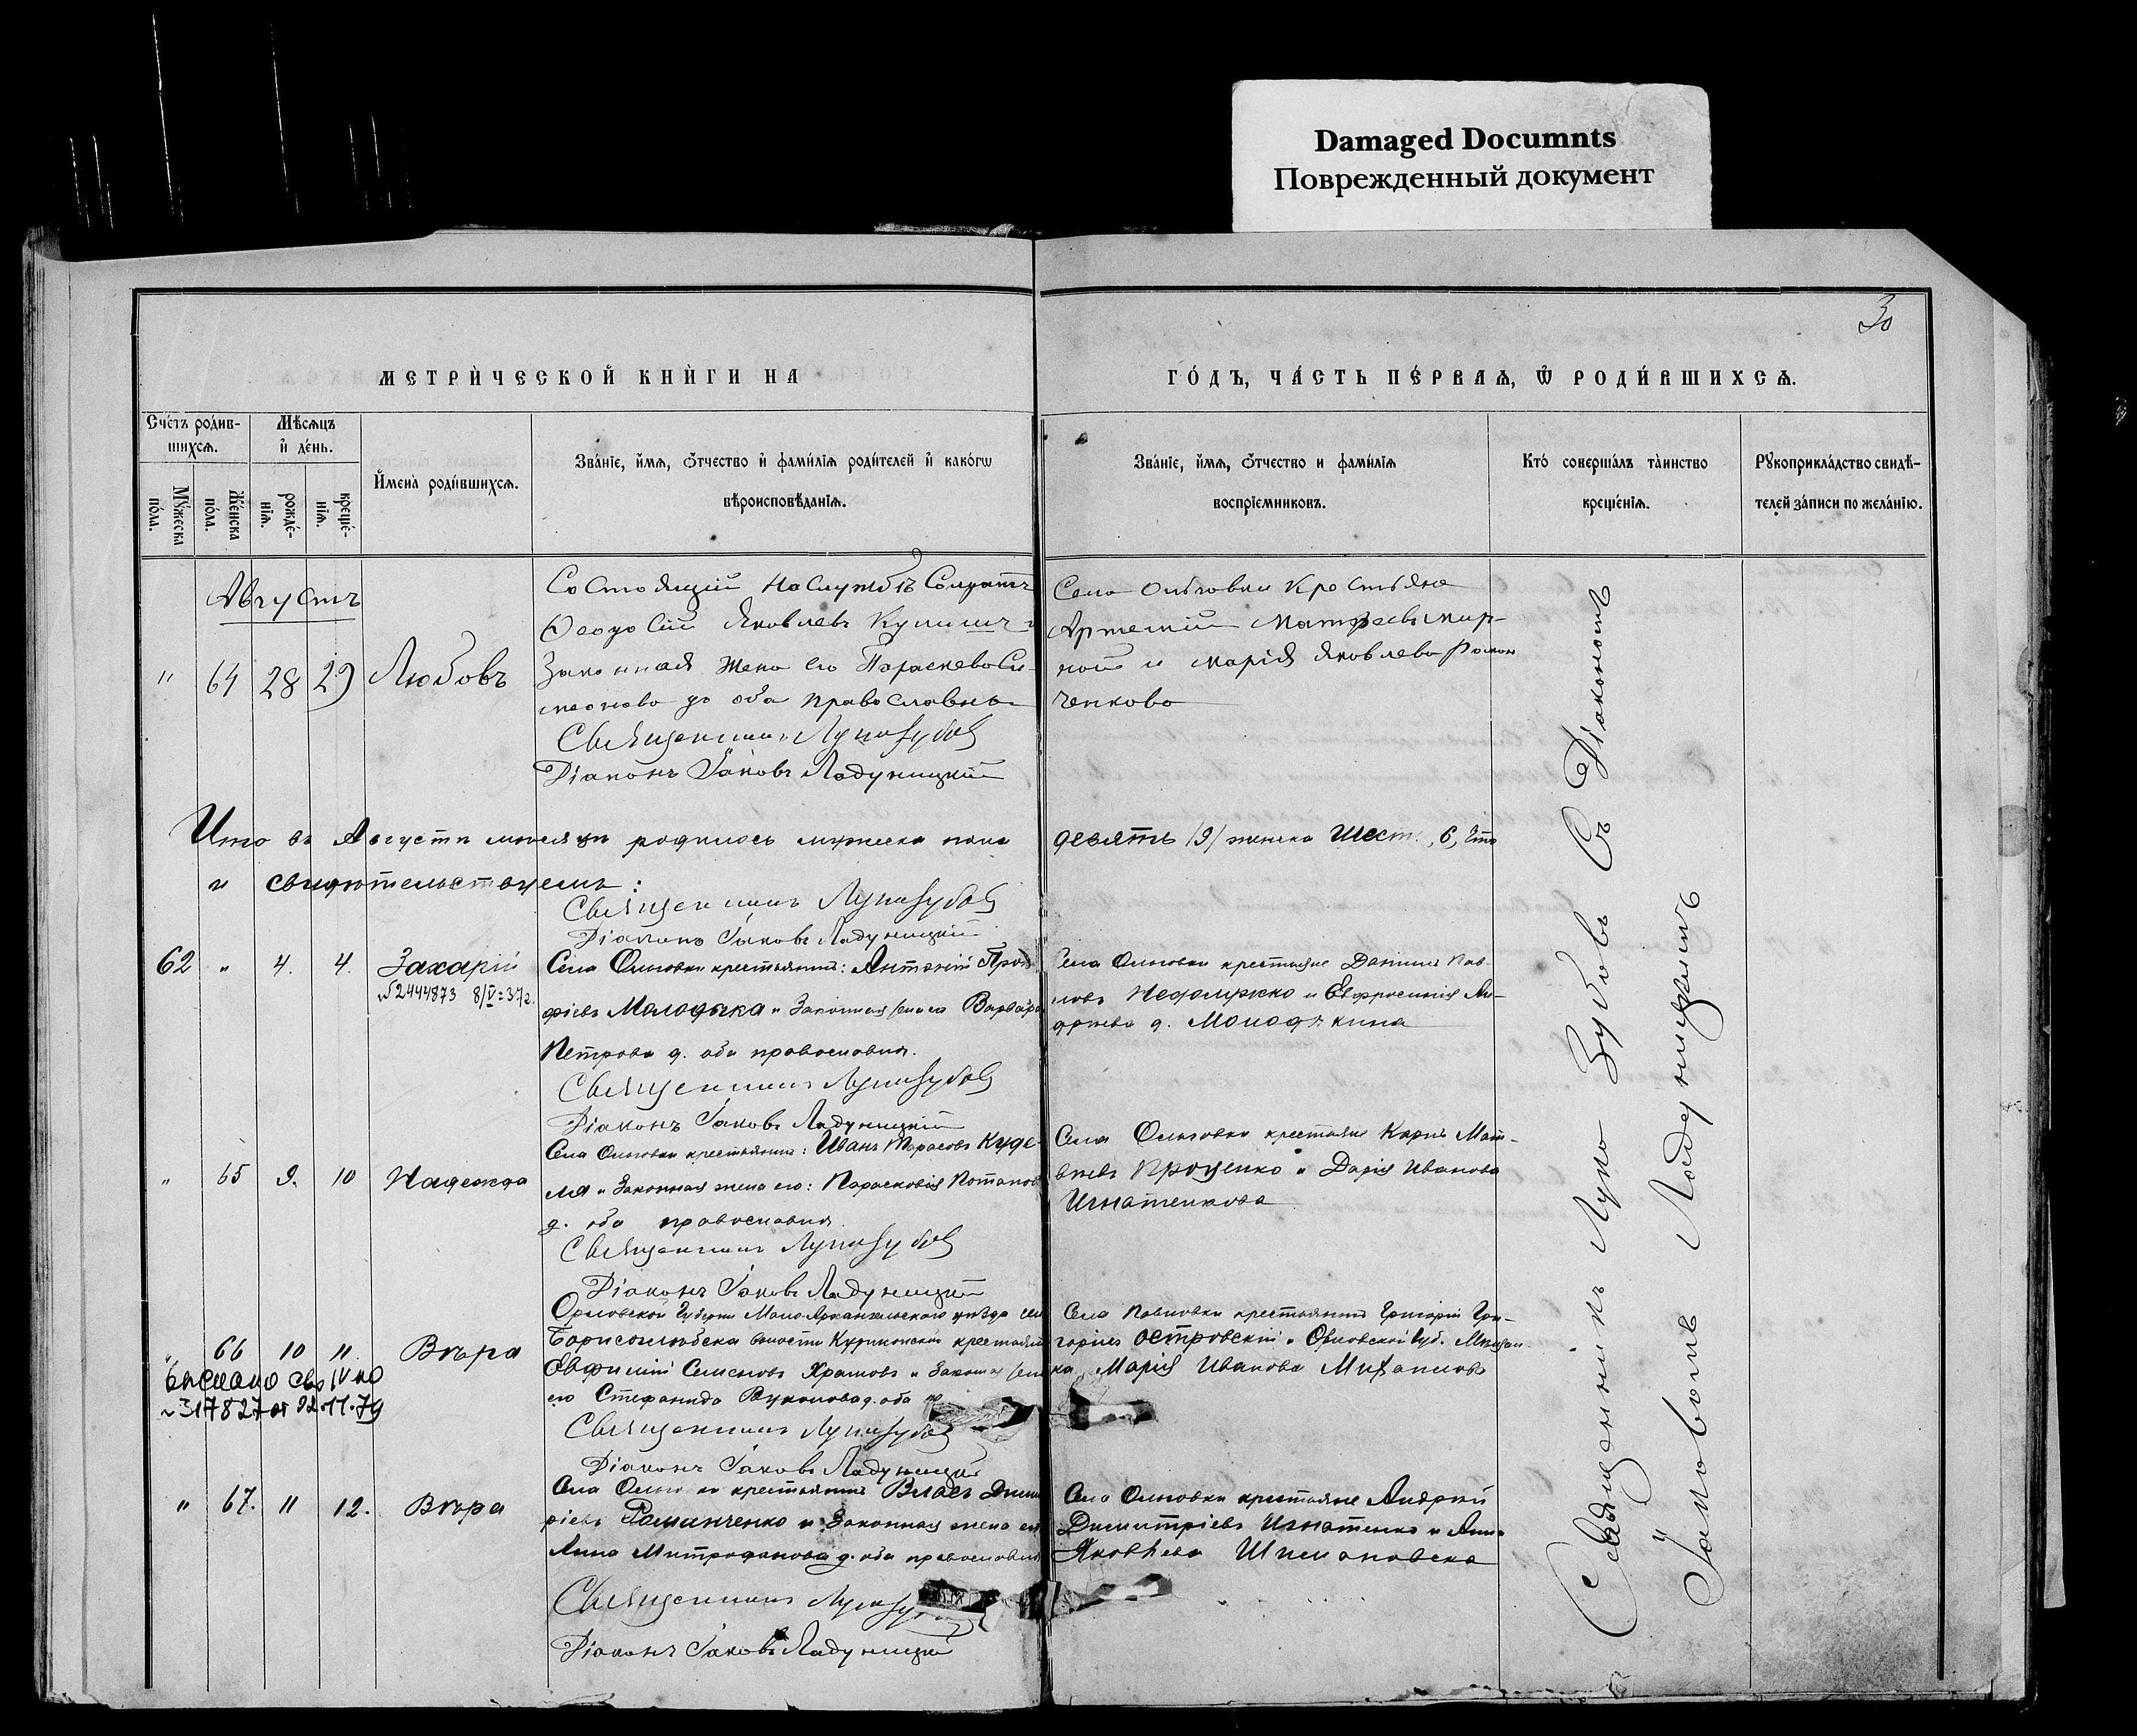 Damaged Documnts
Поврежденный документ
30
МЕТРИ́ЧЕСКОЙ КНИ́ГИ НА
ГО́ДЪ, ЧА́СТЬ ПЕ́РВАѦ, Ѿ РОДИ́ВШИХСѦ.
Сче́тъ роди́в-
шихсѧ.
Мѣсѧцъ
и҆ де́нь.
Мꙋ́жеска
по́ла.
Же́нска
по́ла.
рожде́-
нїѧ.
креще́-
нїѧ.
И҆мена̀ роди́вшихсѧ.
Зва́нїе, и҆́мѧ, ѻ҆́тчество и҆ фами́лїѧ роди́телей и҆ како́гѡ
вѣроисповѣ́данїѧ.
Зва́нїе, и҆́мѧ, ѻ҆́тчество и фами́лїѧ
воспрїе́мниковъ.
Кто́ соверша́лъ та̀инство
креще́нїѧ.
Рꙋкоприкла́дство свидѣ́-
телей за́писи по жела́нїю.
Августъ
" 64 28 29 Любовь
Состоящій на службѣ Солдатъ
Ѳеодосій Яковлевъ
Законная жена его Параскева Си-
меонова до оба православны
Священникъ Лука Зубовъ
Діаконъ Іаковъ Ладуницкій
Села Ольговки Крестьяне
Артемій Матѳеевъ
и Марія Яковлева Роман
ченкова
Итого въ Августѣ мѣсяцѣ родилось мужеска пола
девять /9/ женска шесть, 6, Что
и свидѣтельствуемъ:
Священникъ Лука Зубовъ
Діаконъ Іаковъ Ладуницкій
62 " 4. 4. Захарій
№ 2444873 8/V=37г.
Села Ольговки крестьянинъ: Антоній Прок
фіевъ Молодыка и Законная жена его Варвара
Петрова д. оба православны.
Священникъ Лука Зубовъ
Діаконъ Іаковъ Ладуницкій
Села Ольговки крестьяне Даніилъ Пав-
ловъ Недолужко и Евфросинія Ан-
дреева д. Молодыкина
" 65 9. 10 Надежда
Села Ольговки крестьянинъ: Иванъ Тарасовъ Куде-
ля и Законная жена его: Парасковія Потапов
д. оба православны.
Священникъ Лука Зубовъ
Діаконъ Іаковъ Ладуницкій
Села Ольговки крестьяне Карпъ Мат-
вѣевъ Проценко и Дарія Иванова
Игнатенкова
" 66 10 11. Вѣра
выслано св IV но
№317827 от 22.11.79
Орловской Губерніи Мало Архангельского уѣзда села
Борисоглѣбска волости крестьянинъ
Евфимій Семеновъ Храмовъ и Законная жена
его Стефанида д. оба пр
Священникъ Лука Зубовъ
Діаконъ Іаковъ Ладуницкій
Села Павловки крестьянинъ Григорій Гри-
горіевъ Островскій и Орловской Губ. Мещан-
ка, Марія Иванова
" 67. 11 12. Вѣра
Села Ольговки крестьянинъ Власъ Дими
ріевъ Романченко и Законная жена его
Анна Митрофанова д. оба православны
Священникъ Лука
Діаконъ Іаковъ Ладуницкій
Села Ольговки крестьяне Андрей
Димитріевъ Игнатенко и Анна
Яковлева
Священникъ Лука Зубовъ Съ Діакономъ
Іаковомъ Ладуницкимъ